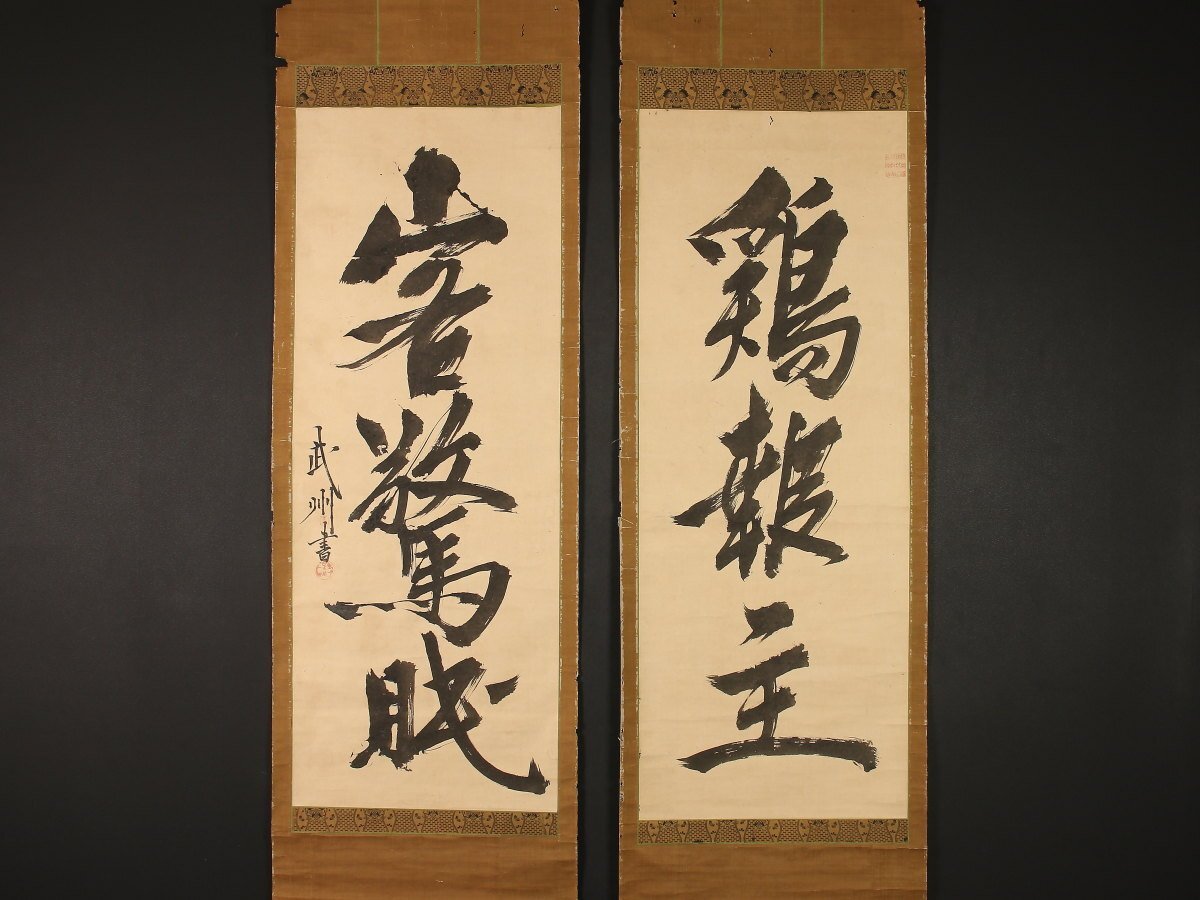 鶏報主
客驚眠
武州書